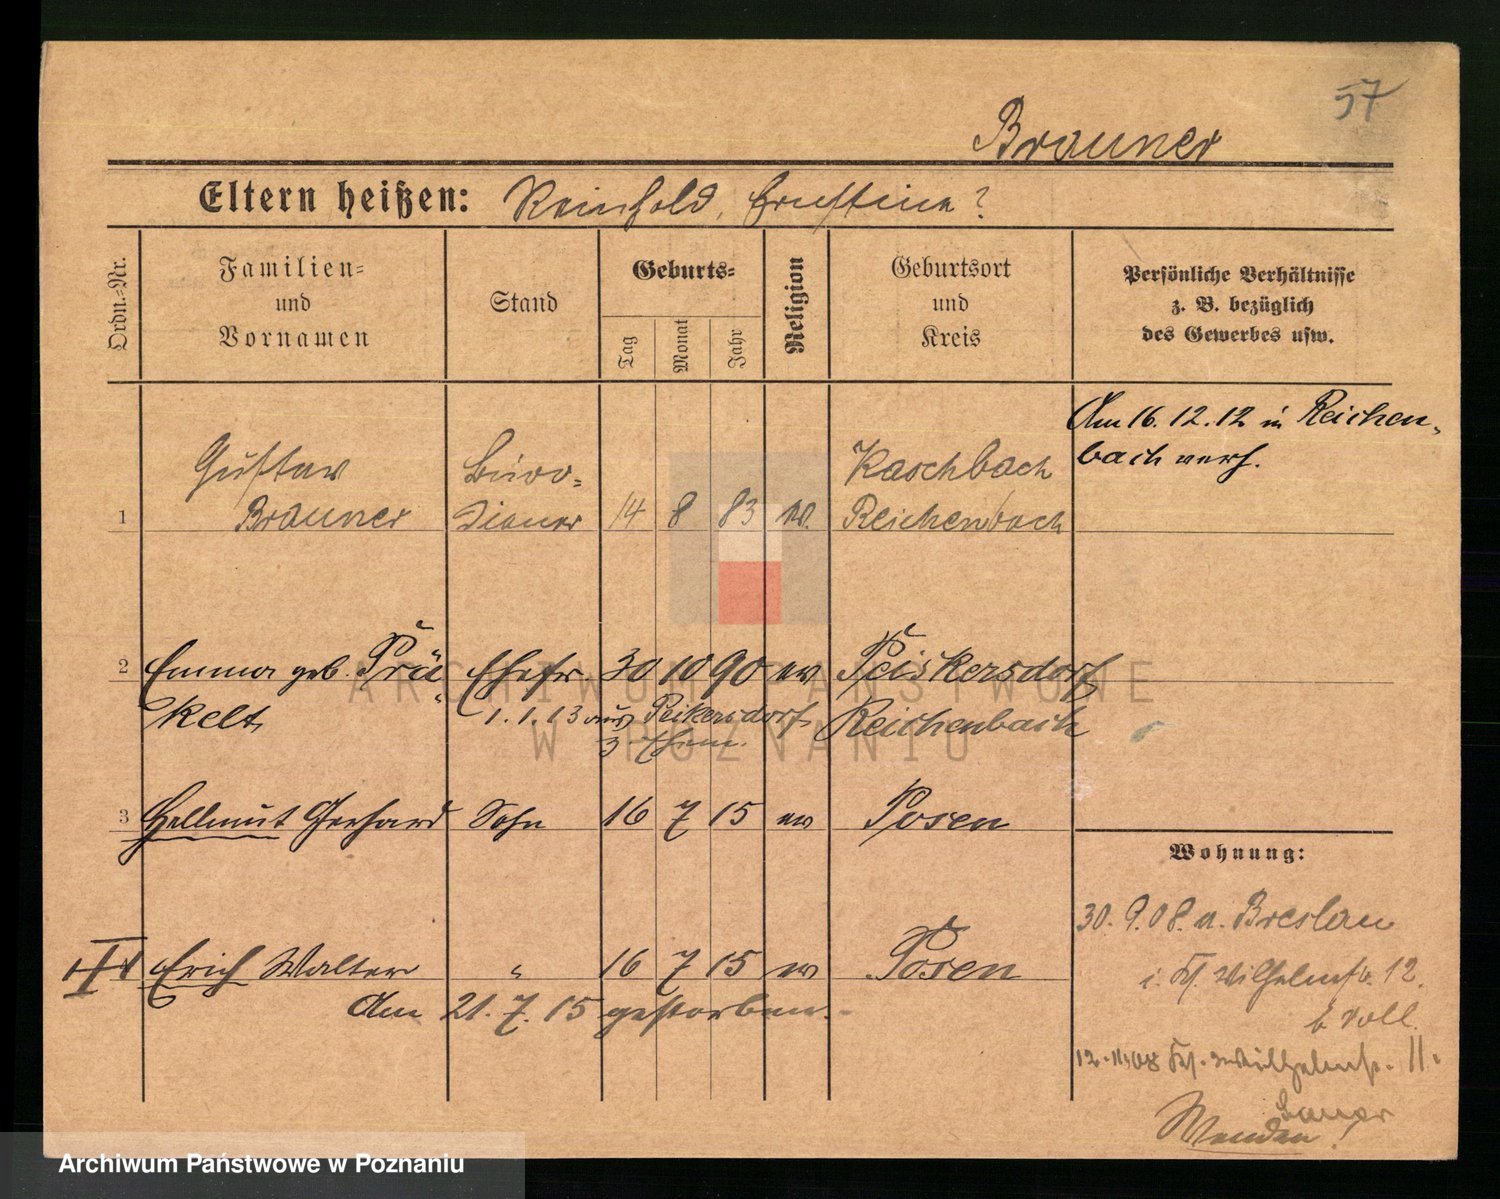 57
Brauner
Eltern heißen: Reinhold, Ernstine?
Ordn.-Nr.
Familien-
und
Vornamen
Stand
Geburts-
Tag
Monat
Jahr
Religion
Geburtsort
und
Kreis
Persönliche Verhältnisse
z. B. bezüglich
des Gewerbes usw.
Am 16.12.12 in Reichen-
bach verh.
Gustav Büro- Kaschbach
1 Brauner diener 14 8 83 ev. Reichenbach
2 Emma geb. Prä- Ehefr 30 10 90 ev Peiskersdorf
kelt 1.1.13 aus Peikersdorf Reichenbach
3 Hellmut Gerhard Sohn 16 7 15 ev Posen
Wohnung:
30.9.08. a. Breslau
Erich Walter " 16 7 15 ev Posen
i. Wilhelmstr. 12.
Am 21.7.15 gestorben.
b. Voll.
12.11.08 Wilhelmstr. 11.
Bauer
Wenden!
ARCHIWUM PAŃSTWOWE
W POZNANIU
Archiwum Państwowe w Poznaniu